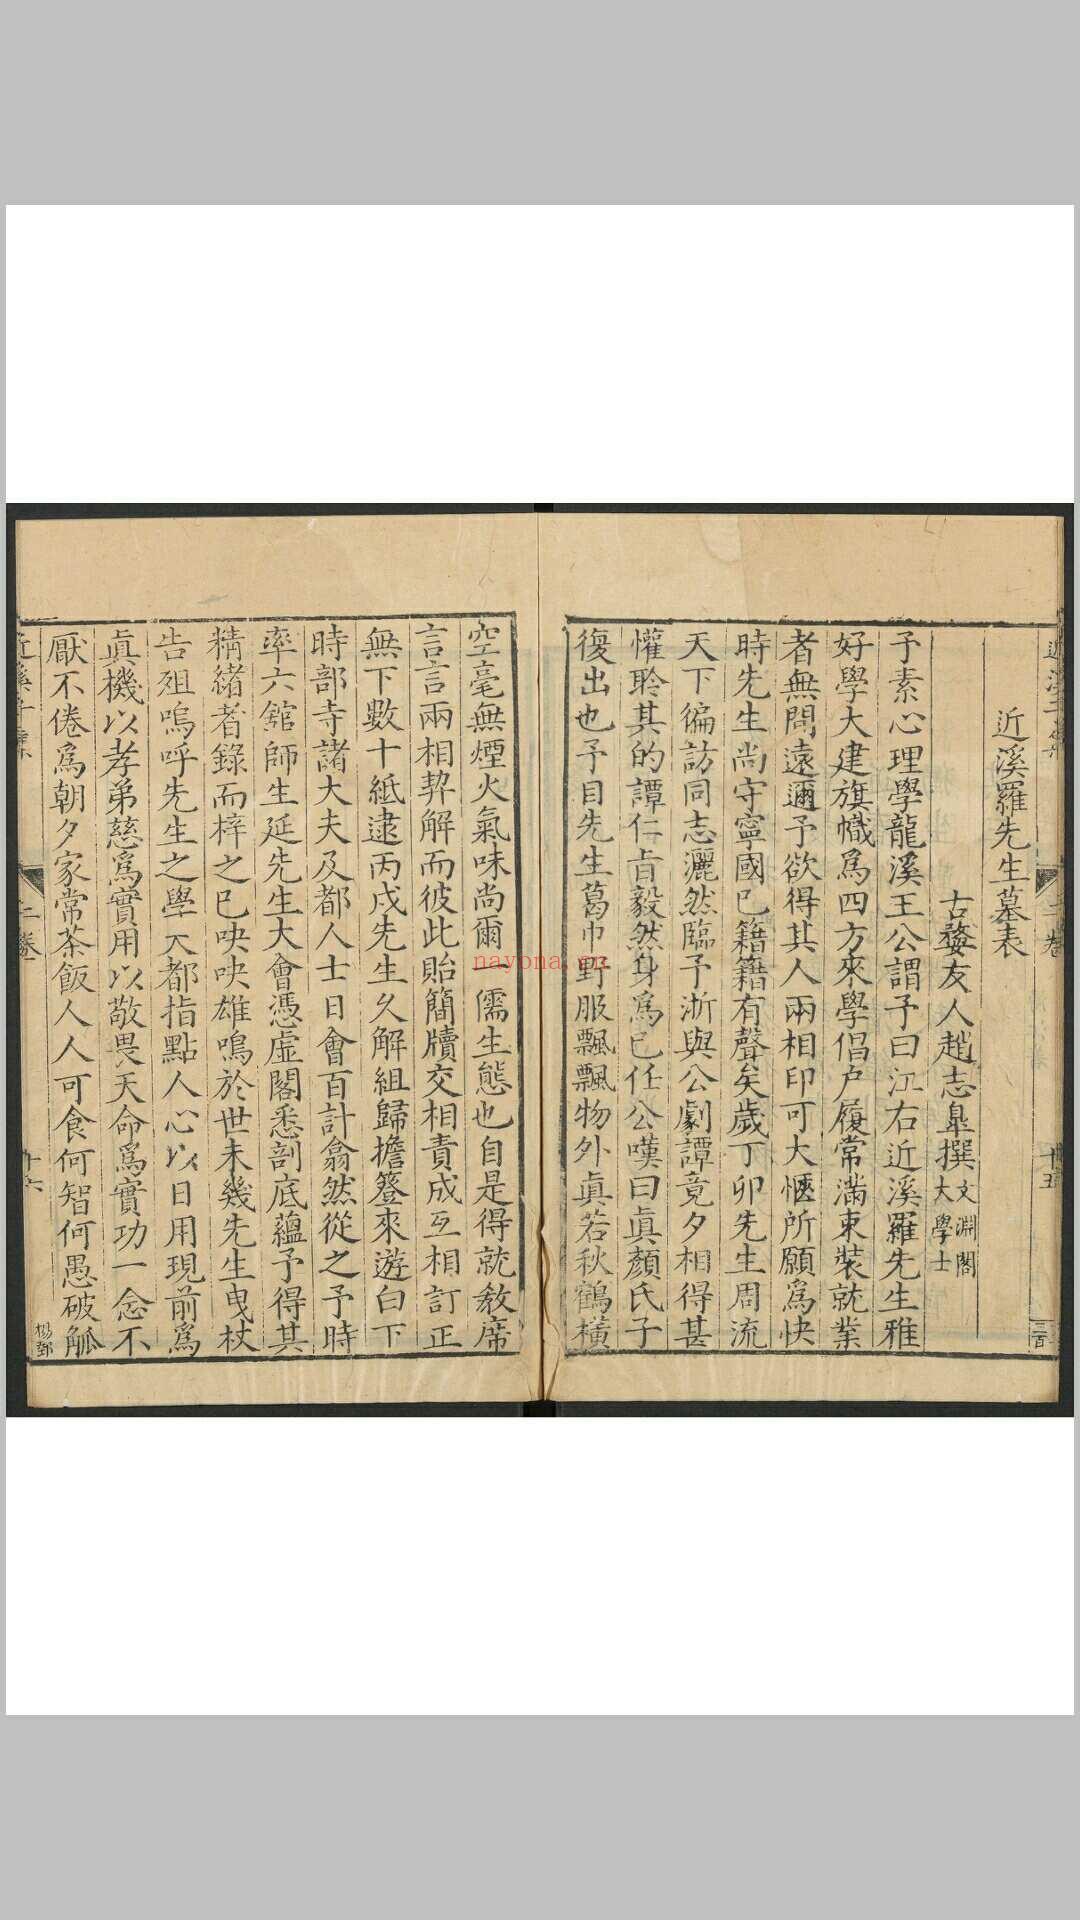 近溪羅先生墓表
古婺友人趙志臯撰文淵閣大學士
予素心理學龍溪王公謂予曰江右近溪羅先生雅
好學大建旗幟爲四方來學倡户履常滿束裝就業
者無問遠邇予欲得其人兩相印可大愜所願爲快
時先生尚守寧國已籍籍有聲矣歲丁卯先生周流
天下徧訪同志灑然臨予浙與公劇譚竟夕相得甚
懽聆其的譚仁㫖毅然身爲已任公嘆曰眞顏氏子
復出也予目先生葛巾野服飄飄物外眞若秋鶴橫
空毫無煙火氣味尚爾一儒生態也自是得就教席
言言兩相契解而彼此貽簡牘交相責成互相訂正
無下數十紙逮丙戌先生久解組歸擔簦來遊白下
時部寺諸大夫及都人士日會百計翕然從之予時
率六舘師生延先生大會憑虛閣悉剖底蘊予得其
精緒者錄而梓之已吷吷雄鳴於世未幾先生曳杖
告殂嗚呼先生之學大都指點人心以日用現前爲
眞機以孝弟慈爲實用以敬畏天命爲實功一念不
厭不倦爲朝夕家常茶飯人人可食何智何愚破觚
二卷
十五
二卷
十六
楊鄧
nayona.cn